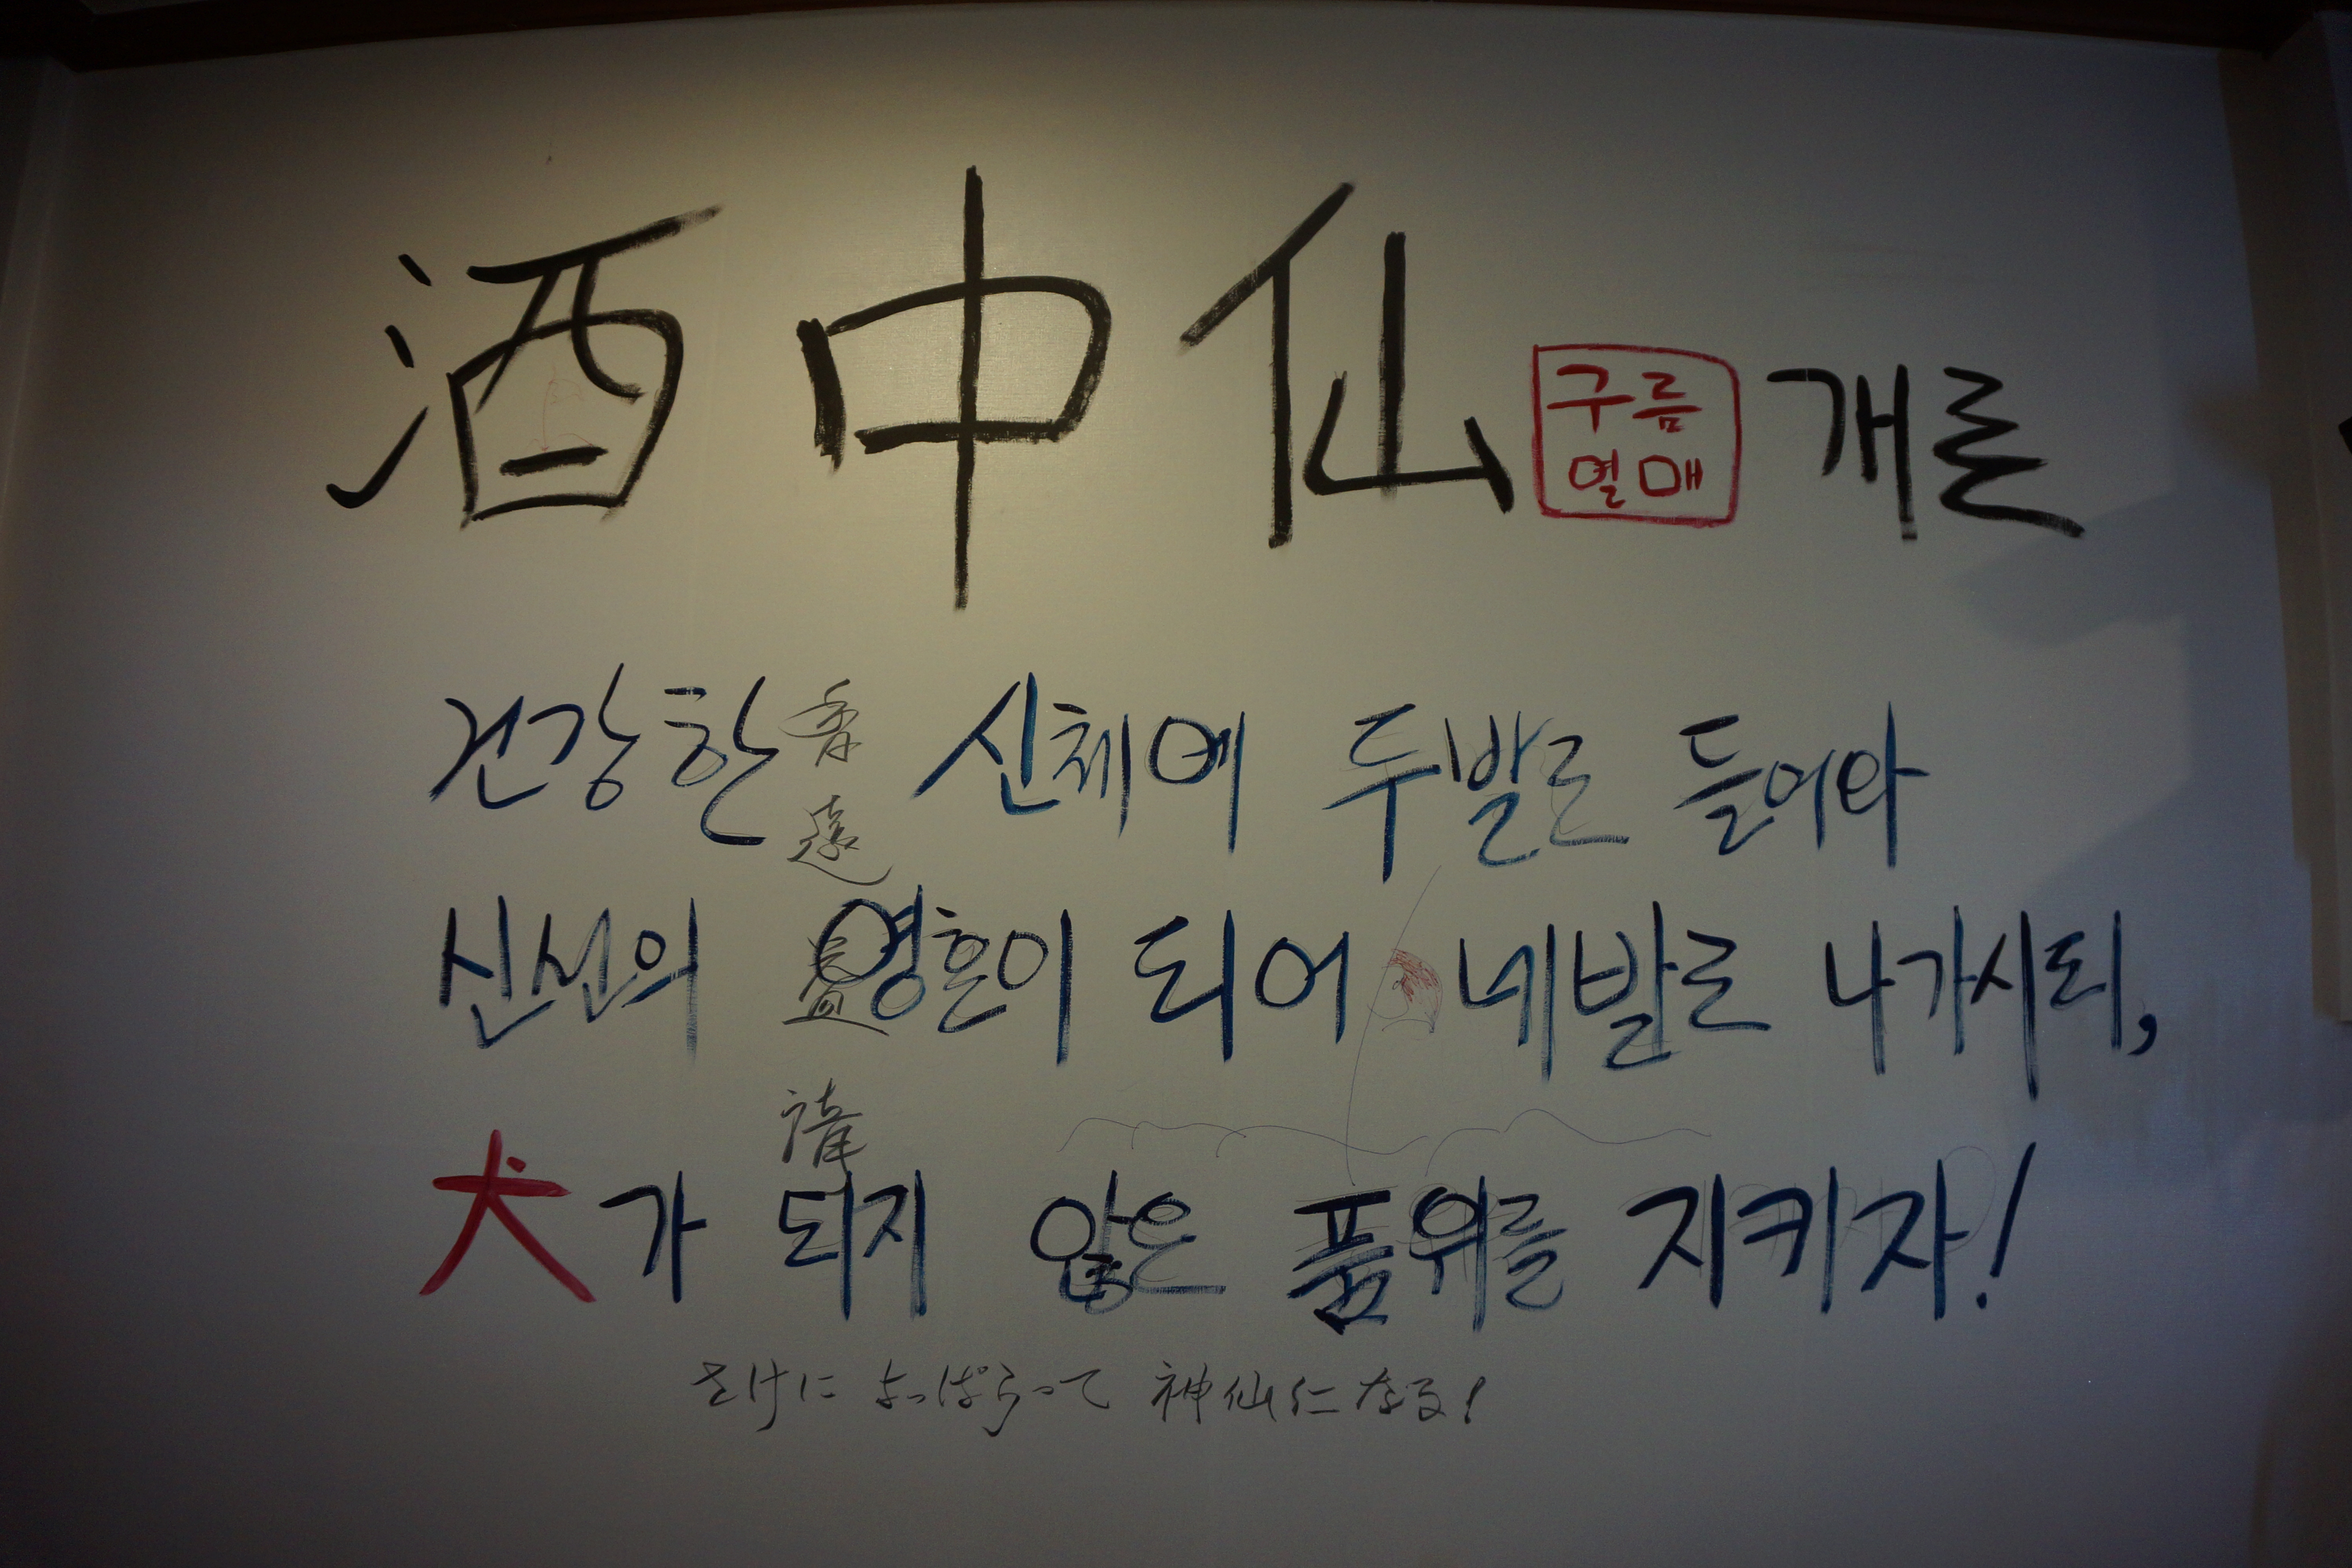 酒中仙 구름 열매 개론
건강한 신체에 두발로 들어와
신선의 영혼이 되어 네발로 나가시되,
犬가 되지 않은 품위를 지키자!
香
遠
益
清
さけに よっぱらって 神仙になる!